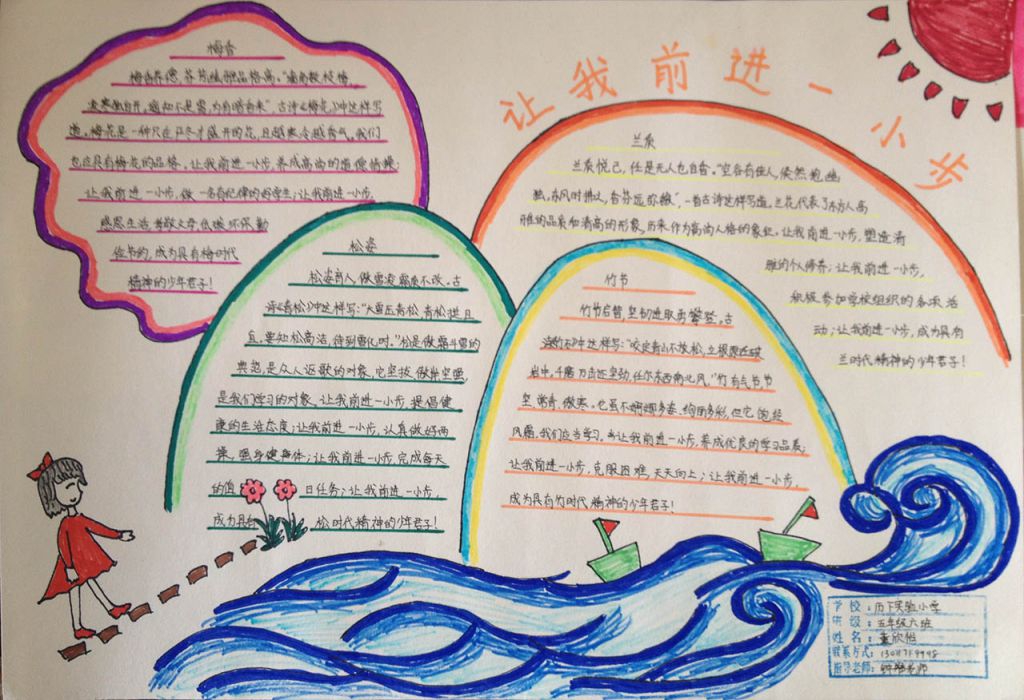 让我前进一小步
梅香
梅香养德，芬芳
凌寒独自开，遥知不是雪，为有暗香来”，古诗《梅花》中这样写
道。梅花是一种只在严冬才盛开的花，且越寒冷越香气。我们
也应具有梅花的品格。让我前进一小步，养成高尚的道德情操；
让我前进一小步，做一名有纪律的好学生；让我前进一小步，
感恩生活 孝敬父母 低碳环保 勤
俭节约，成为具有梅时代
精神的少年君子！
兰质
兰质悦己，任是无人也自香。“空谷有佳人，倏然抱幽
独。东风时拂之，香芬远弥馥”，一首古诗这样写道。兰花代表了东方人高
雅的品质和清高的形象，历来作为高尚人格的象征。让我前进一小步，塑造清
雅的个人修养；让我前进一小步，
积极参加学校组织的各项活
动；让我前进一小步，成为具有
兰时代精神的少年君子！
松姿
松姿育人，傲雪凌霜质不改。古
诗《青松》中这样写：“大雪压青松，青松挺且
直。要知松高洁，待到雪化时。”松是傲霜斗雪的
典范，是众人讴歌的对象，它坚拔 傲岸 坚强，
是我们学习的对象。让我前进一小步，提倡健
康的生活态度；让我前进一小步，认真做好两
操，强身健身体；让我前进一小步，完成每天
的值日任务；让我前进一小步，
成为具有松时代精神的少年君子！
竹节
竹节启智，坚韧进取勇攀登。古
中这样写：“咬定青山不放松，立根原在破
岩中，千磨万击还坚劲，任尔东西南北风。”竹有气节，节
坚、常青、傲寒，它虽不婀娜多姿、绚丽多彩，但它饱经
风霜，我们应当学习。让我前进一小步，养成优良的学习品质；
让我前进一小步，克服困难，天天向上；让我前进一小步，
成为具有竹时代精神的少年君子！
学校：历下实验小学
班级：五年级六班
姓名：董欣怡
联系方式：
指导老师：老师